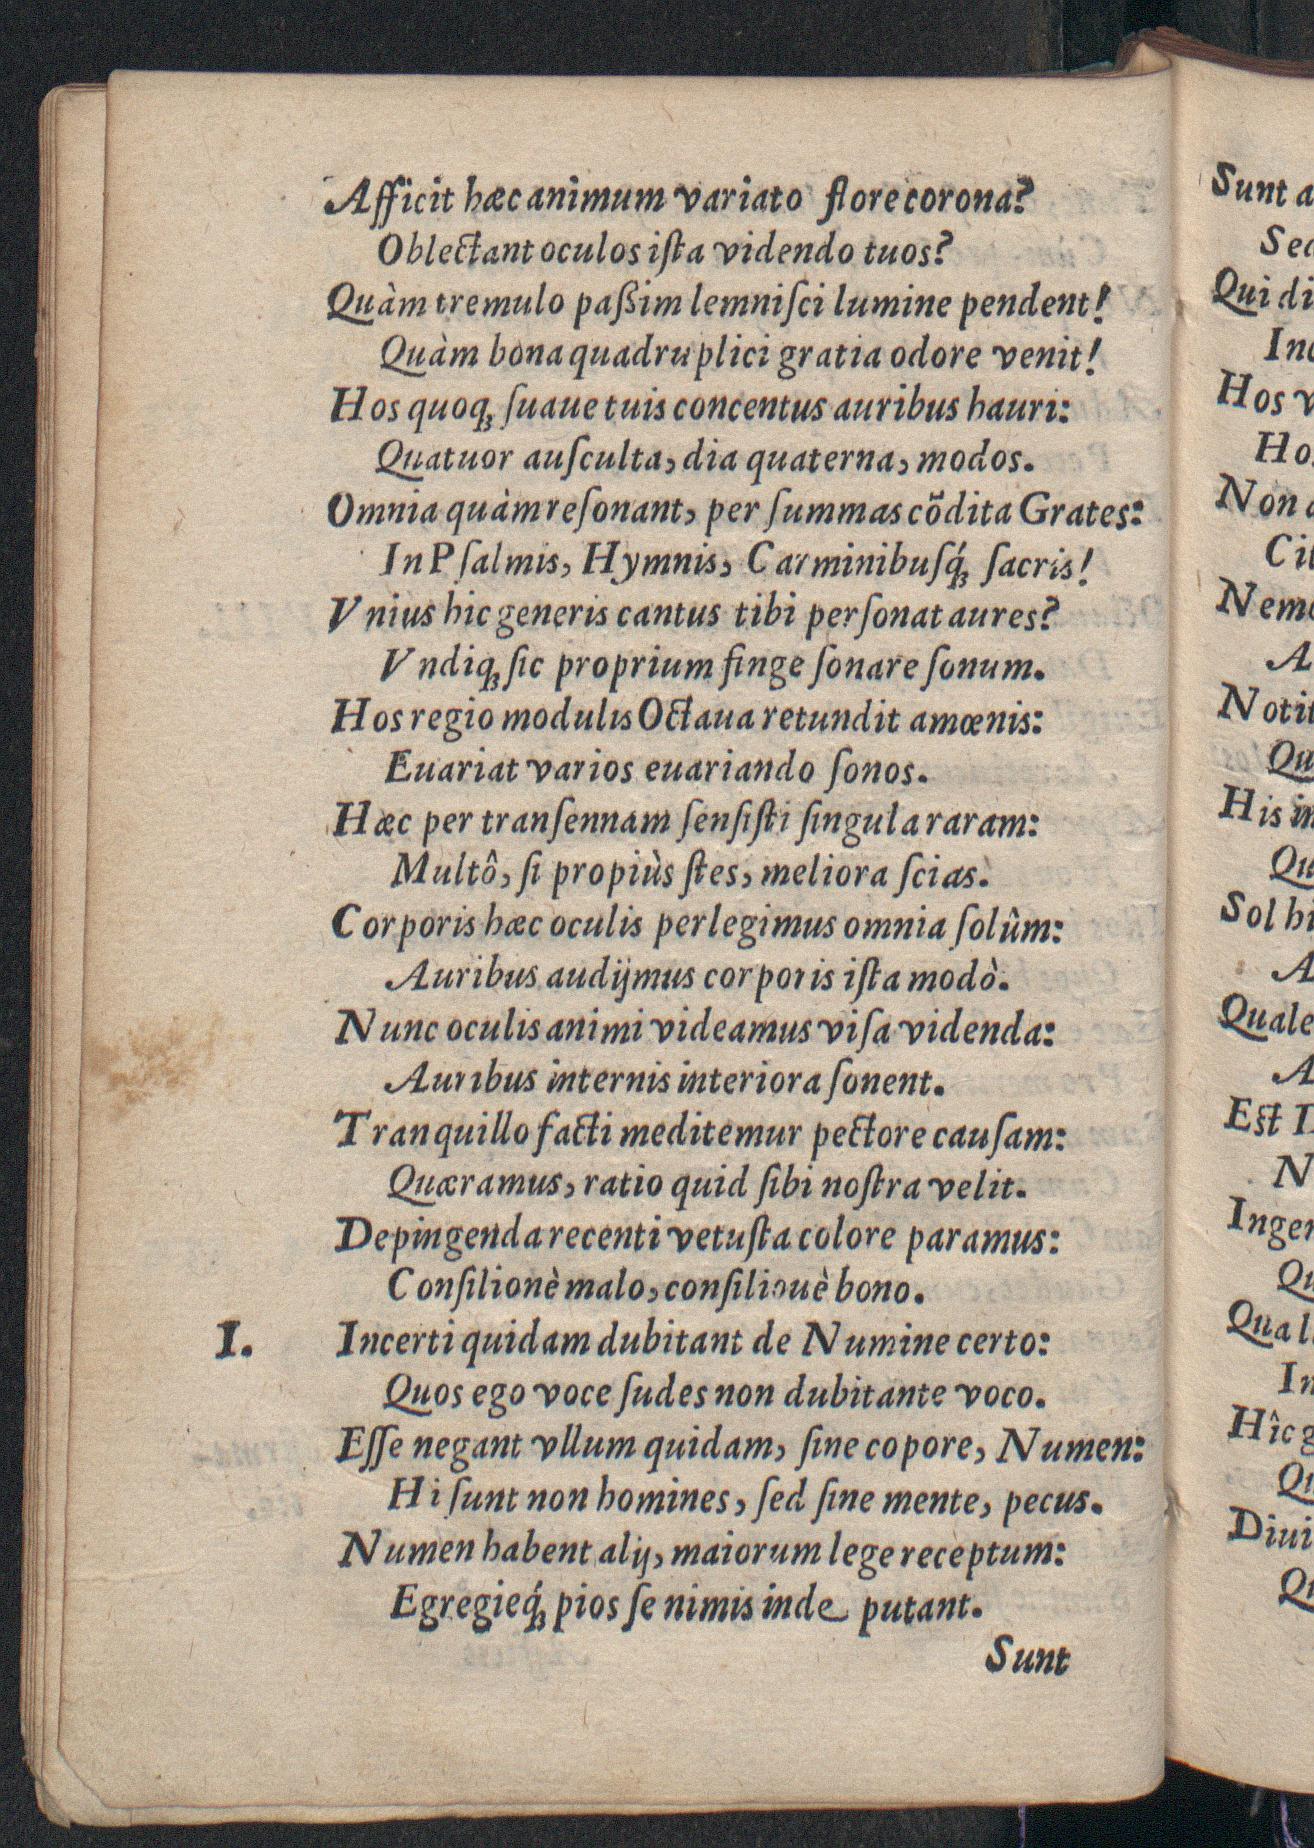 Afficit hæc animum variato flore corona?
Oblectant oculos iſta videndo tuos?
Quàm tremulo paßim lemniſci lumine pendent!
Quàm bona quadruplici gratia odore venit!
Hos quoqꝫ ſuaue tuis concentus auribus hauri:
Quatuor auſculta, dia quaterna, modos.
Omnia quàm reſonant, per ſummas cõdita Grates:
In Pſalmis, Hymnis, Carminibuſq́ꝫ ſacris!
Vnius hic generis cantus tibi perſonat aures?
Vndiqꝫ ſic proprium finge ſonare ſonum.
Hos regio modulis Octaua retundit amœnis:
Euariat varios euariando ſonos.
Hæc per tranſennam ſenſiſti ſingula raram:
Multô, ſi propiùs ſtes, meliora ſcias.
Corporis hæc oculis perlegimus omnia ſolûm:
Auribus audijmus corporis iſta modò.
Nunc oculis animi videamus viſa videnda:
Auribus internis interiora ſonent.
Tranquillo facti meditemur pectore cauſam:
Quæramus, ratio quid ſibi noſtra velit.
Depingenda recenti vetuſta colore paramus:
Conſilionè malo, conſiliouè bono.
I. Incerti quidam dubitant de Numine certo:
Quos ego voce ſudes non dubitante voco.
Eſſe negant vllum quidam, ſine copore, Numen:
Hi ſunt non homines, ſed ſine mente, pecus.
Numen habent alij, maiorum lege receptum:
Egregieq́ꝫ pios ſe nimis inde putant.
Sunt
Sunt a
Sed
Qui di
Inc
Hos v
Ho
Non a
Cit
Nemo
A
Notit
Qu
His in
Qu
Sol hi
A
Quale
A
Est I
N
Inger
Qu
Qual
In
Hîc g
Qu
Diui
Qu